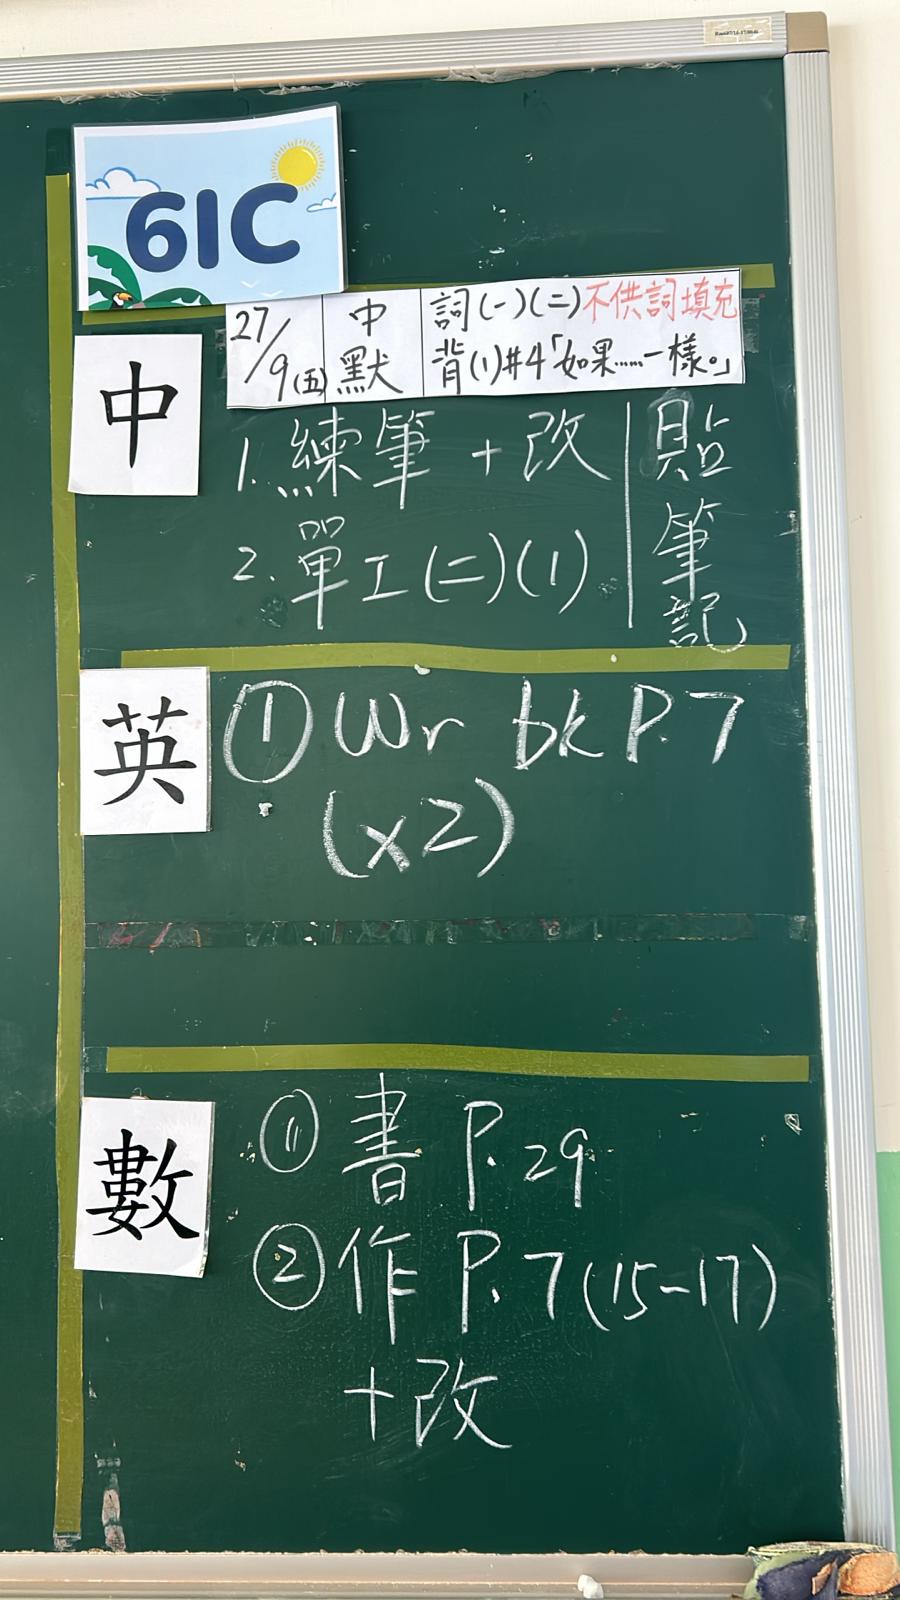 61C
27/9(五) 中默 詞(一)(二)不供詞填充
背(1)#4「如果......一樣。」
中
1. 練筆 + 改
2. 單工(二)(1)
貼筆記
英
① Wr bk P.7
(x2)
數
① 書 P.29
② 作 P.7(15-17)
+改